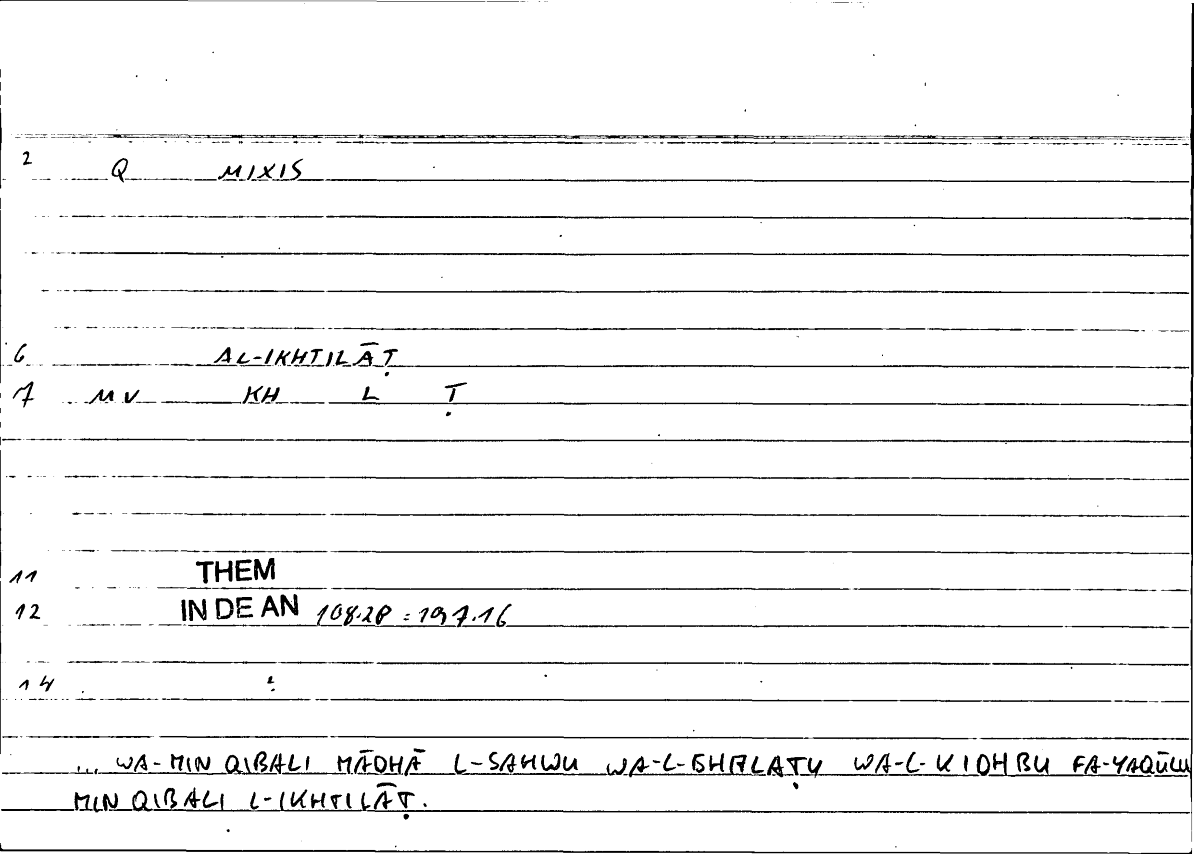 2 Q MIXIS
6 AL-IKHTILĀṬ
7 MV KH L Ṭ
11 THEM
12 IN DE AN 108.28 = 197.16
14
... WA-MIN QIBALI MĀDHĀ L-SAHWU WA-L-GHALAṬU WA-L-KIDHBU FA-YAQŪLU
MIN QIBALI L-IKHTILĀṬ.